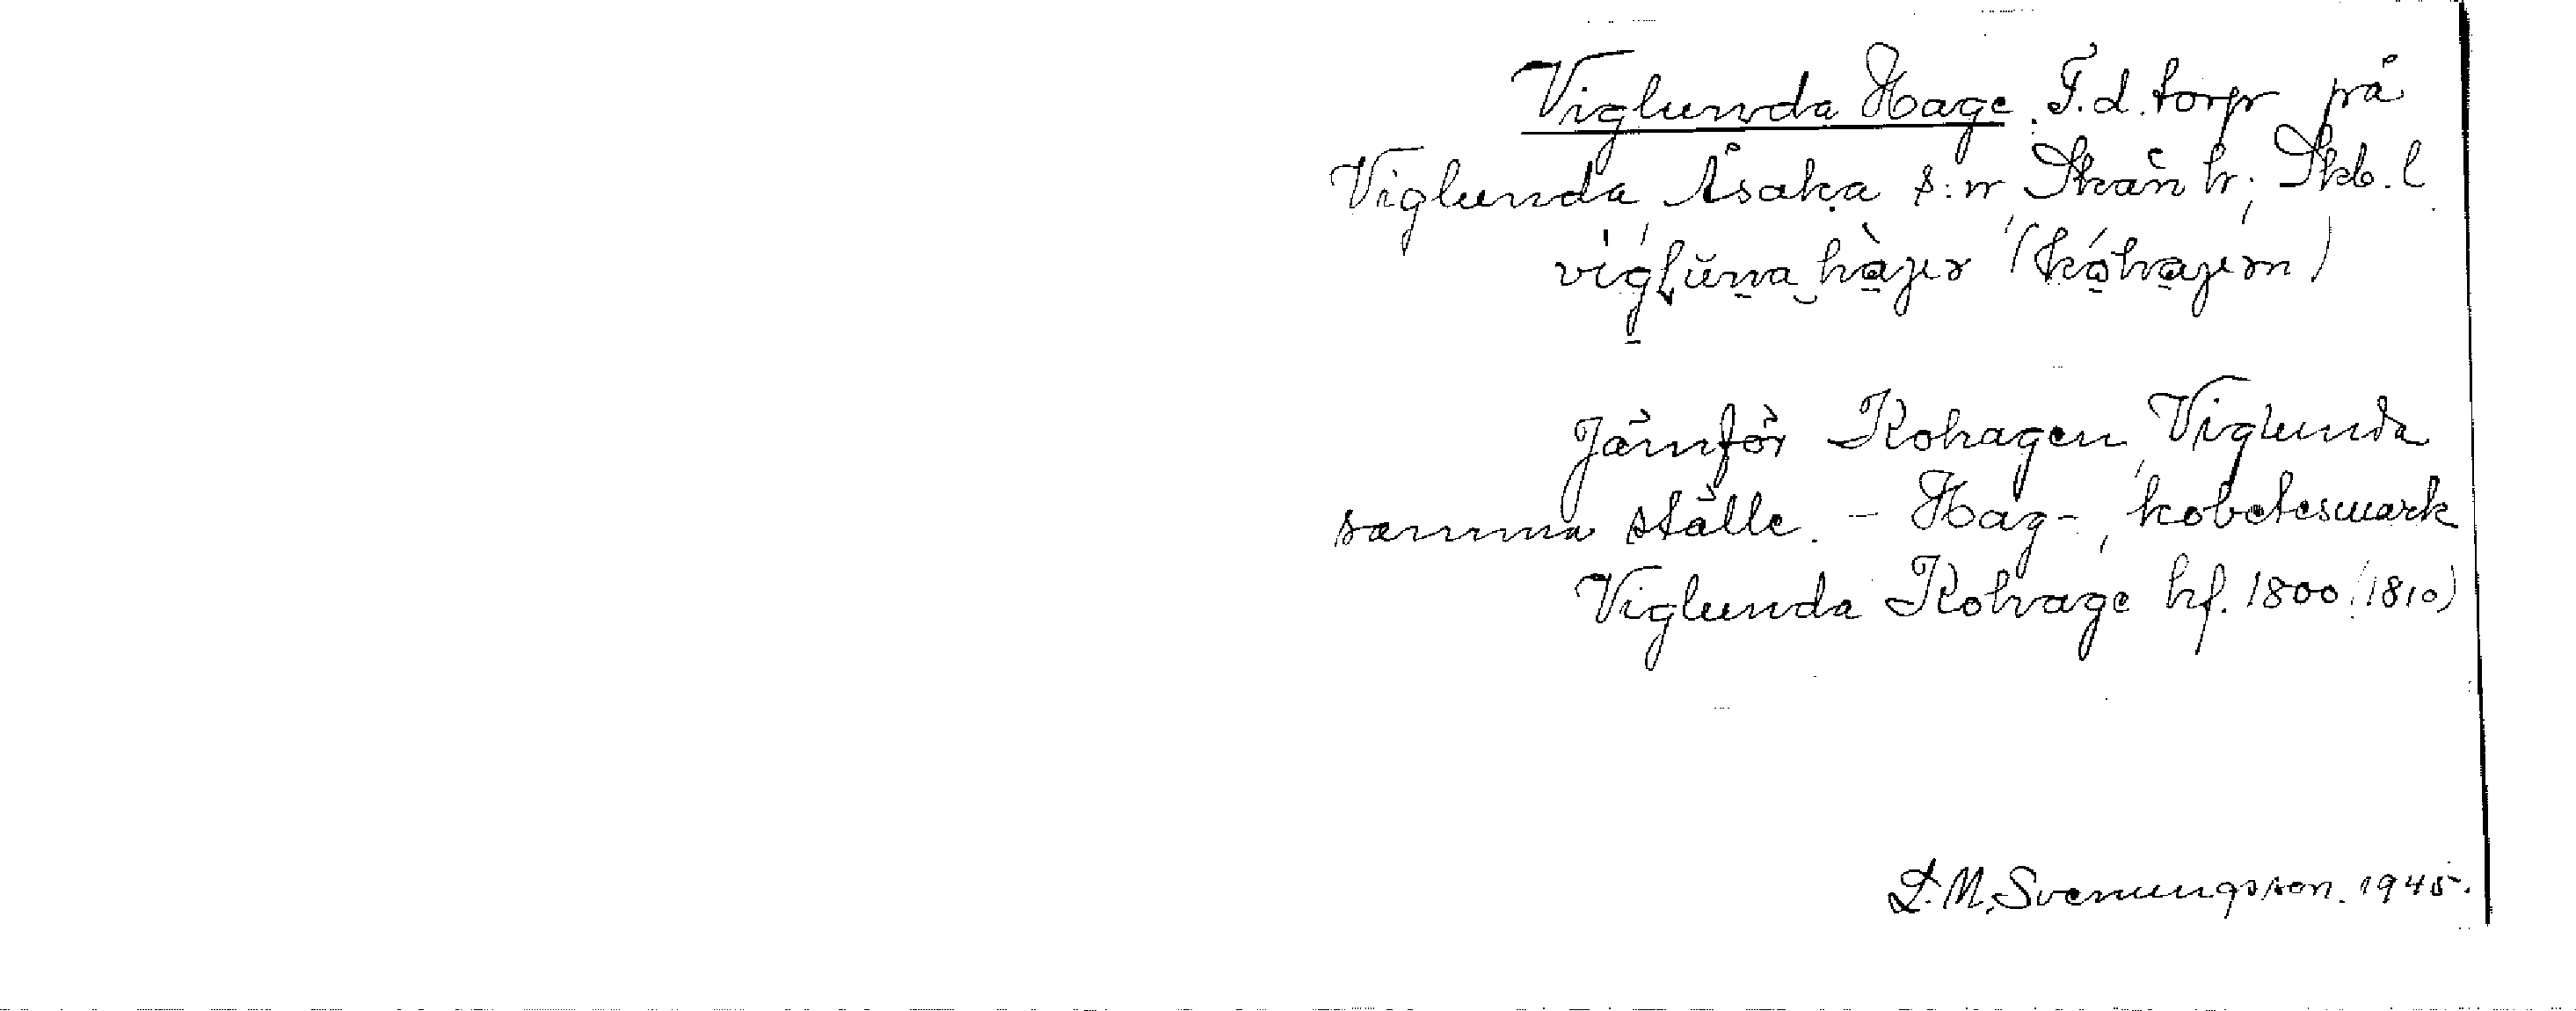 Viglunda Hage. F.d. torp på
Viglunda, Åsaka s:n, Skån hr; Skb. l
vígɫùna hàjer (kóhajern)
Jämför Kohagen, Viglunda
samma ställe. - Hag-, kobetesmark
Viglunda Kohage hf. 1800 (1810)
L. M. Svenungsson. 1945.